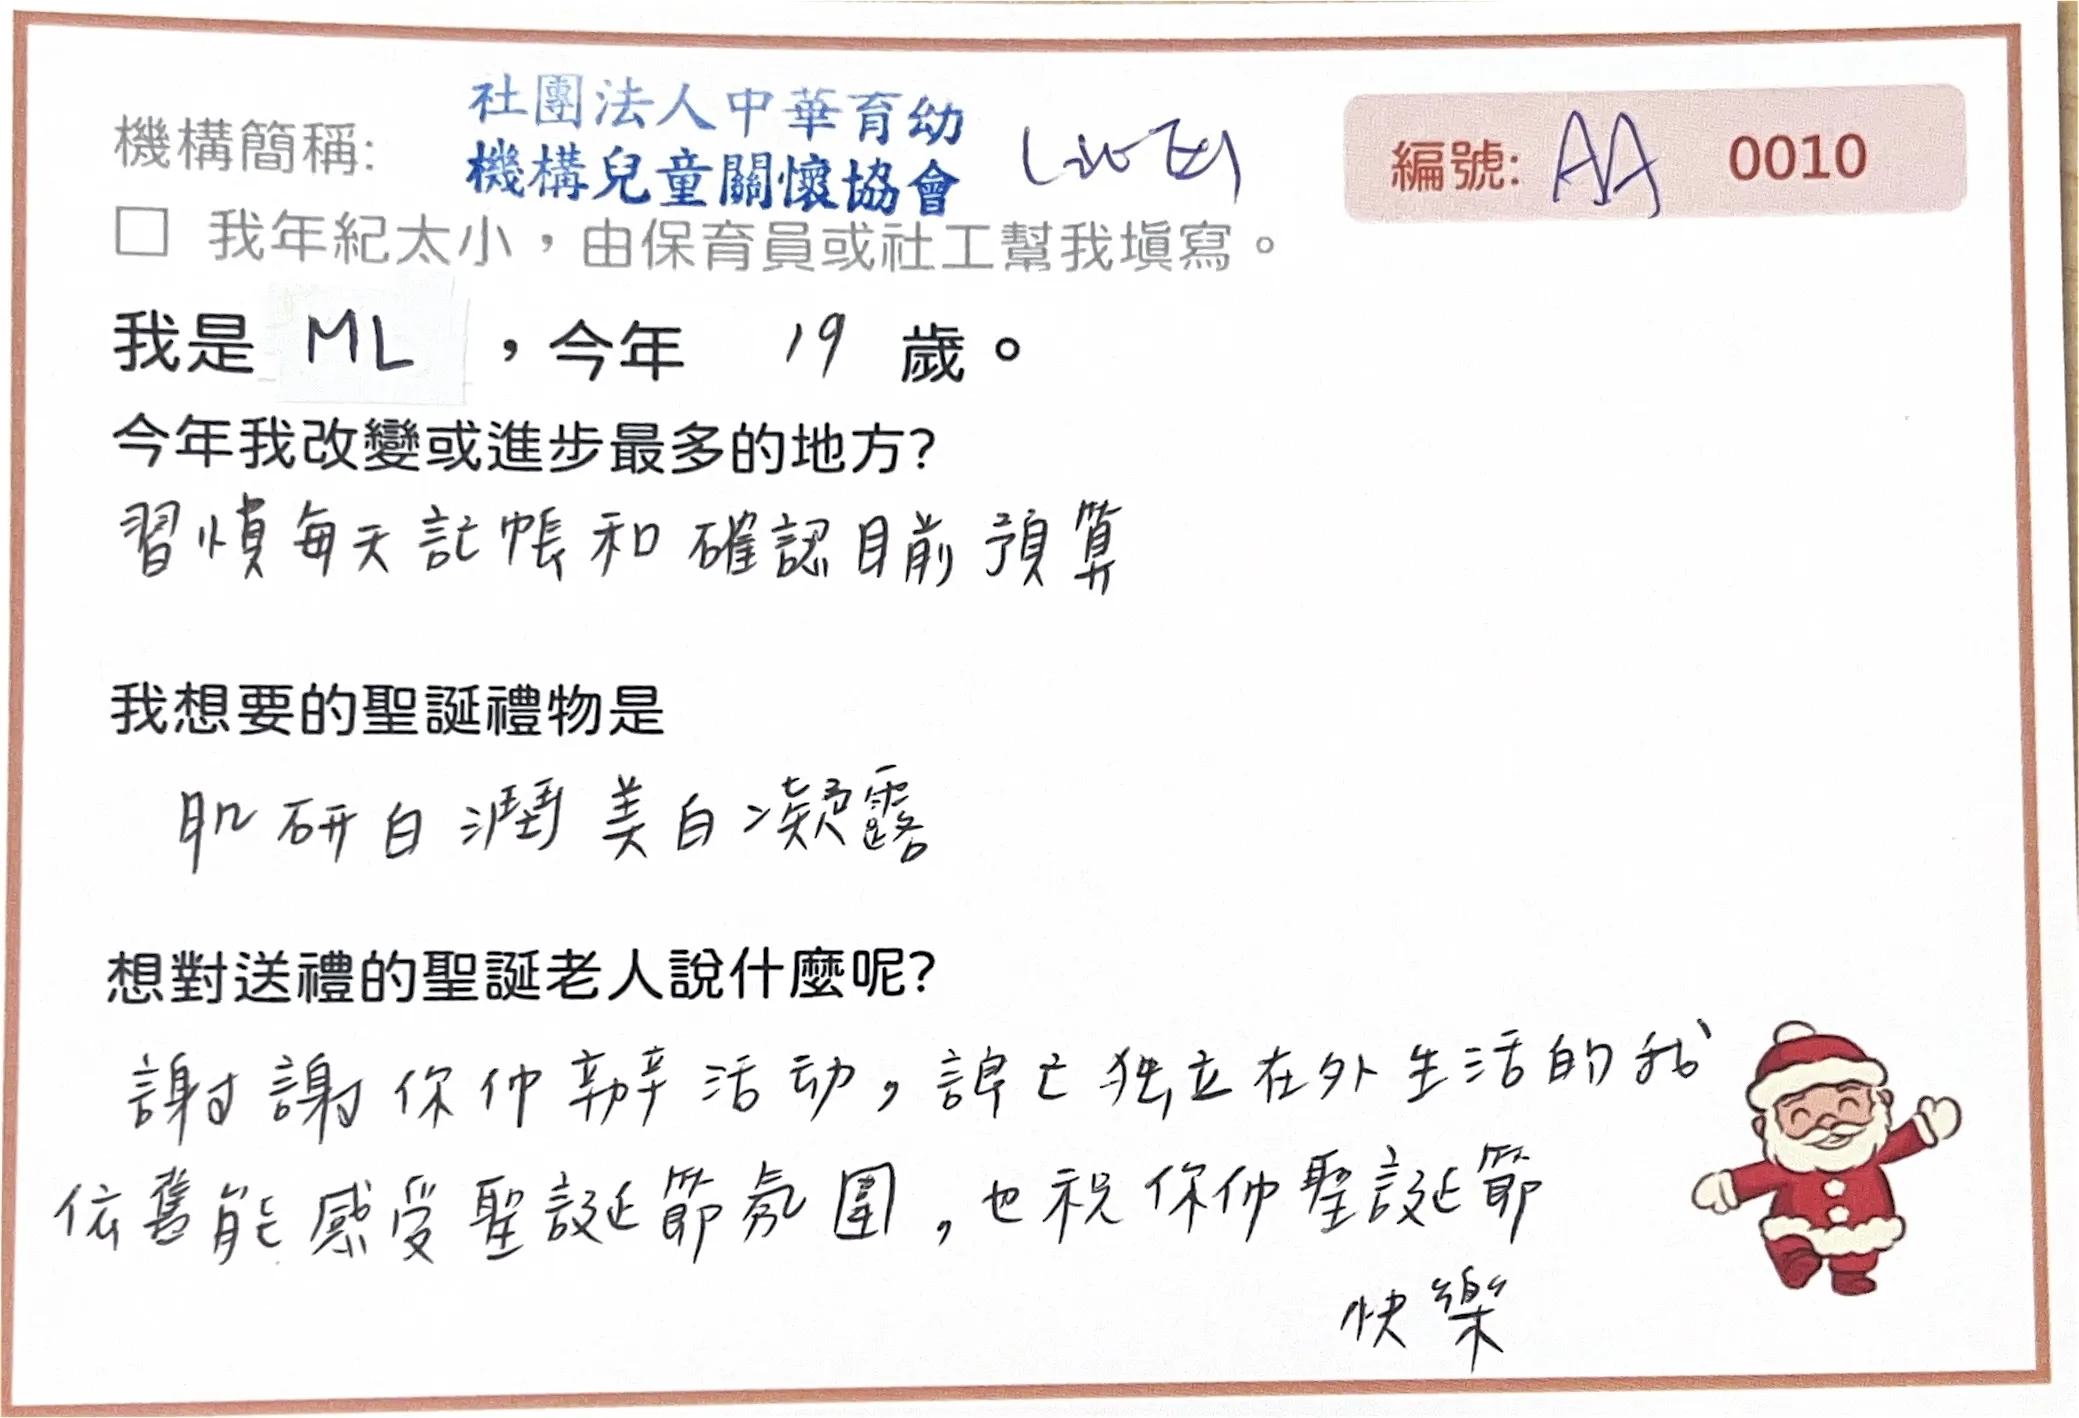 社團法人中華育幼
機構簡稱: 機構兒童關懷協會
編號: AA 0010
□ 我年紀太小，由保育員或社工幫我填寫。
我是 ML ，今年 19 歲。
今年我改變或進步最多的地方?
習慣每天記帳和確認目前預算
我想要的聖誕禮物是
肌研白潤美白凝露
想對送禮的聖誕老人說什麼呢?
謝謝你們辦活动，讓已独立在外生活的我
依舊能感受聖誕節氛圍，也祝你們聖誕節
快樂